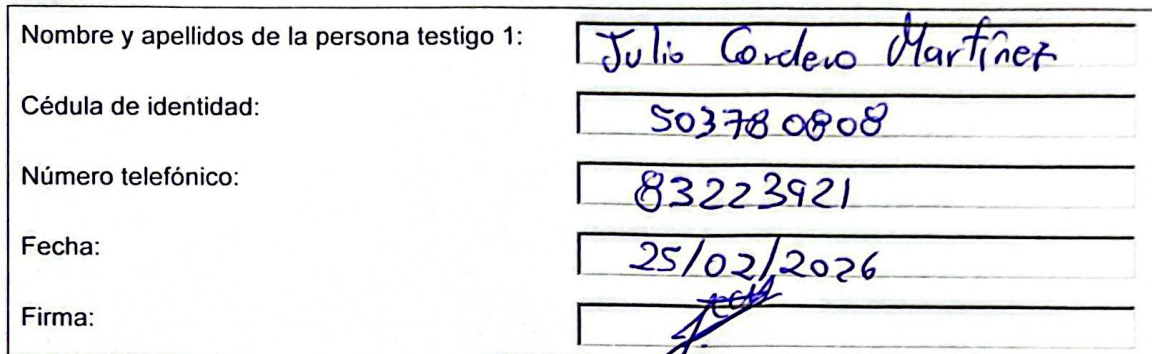 Nombre y apellidos de la persona testigo 1: Julio Cordero Martínez
Cédula de identidad: 503780808
Número telefónico: 83223921
Fecha: 25/02/2026
Firma: